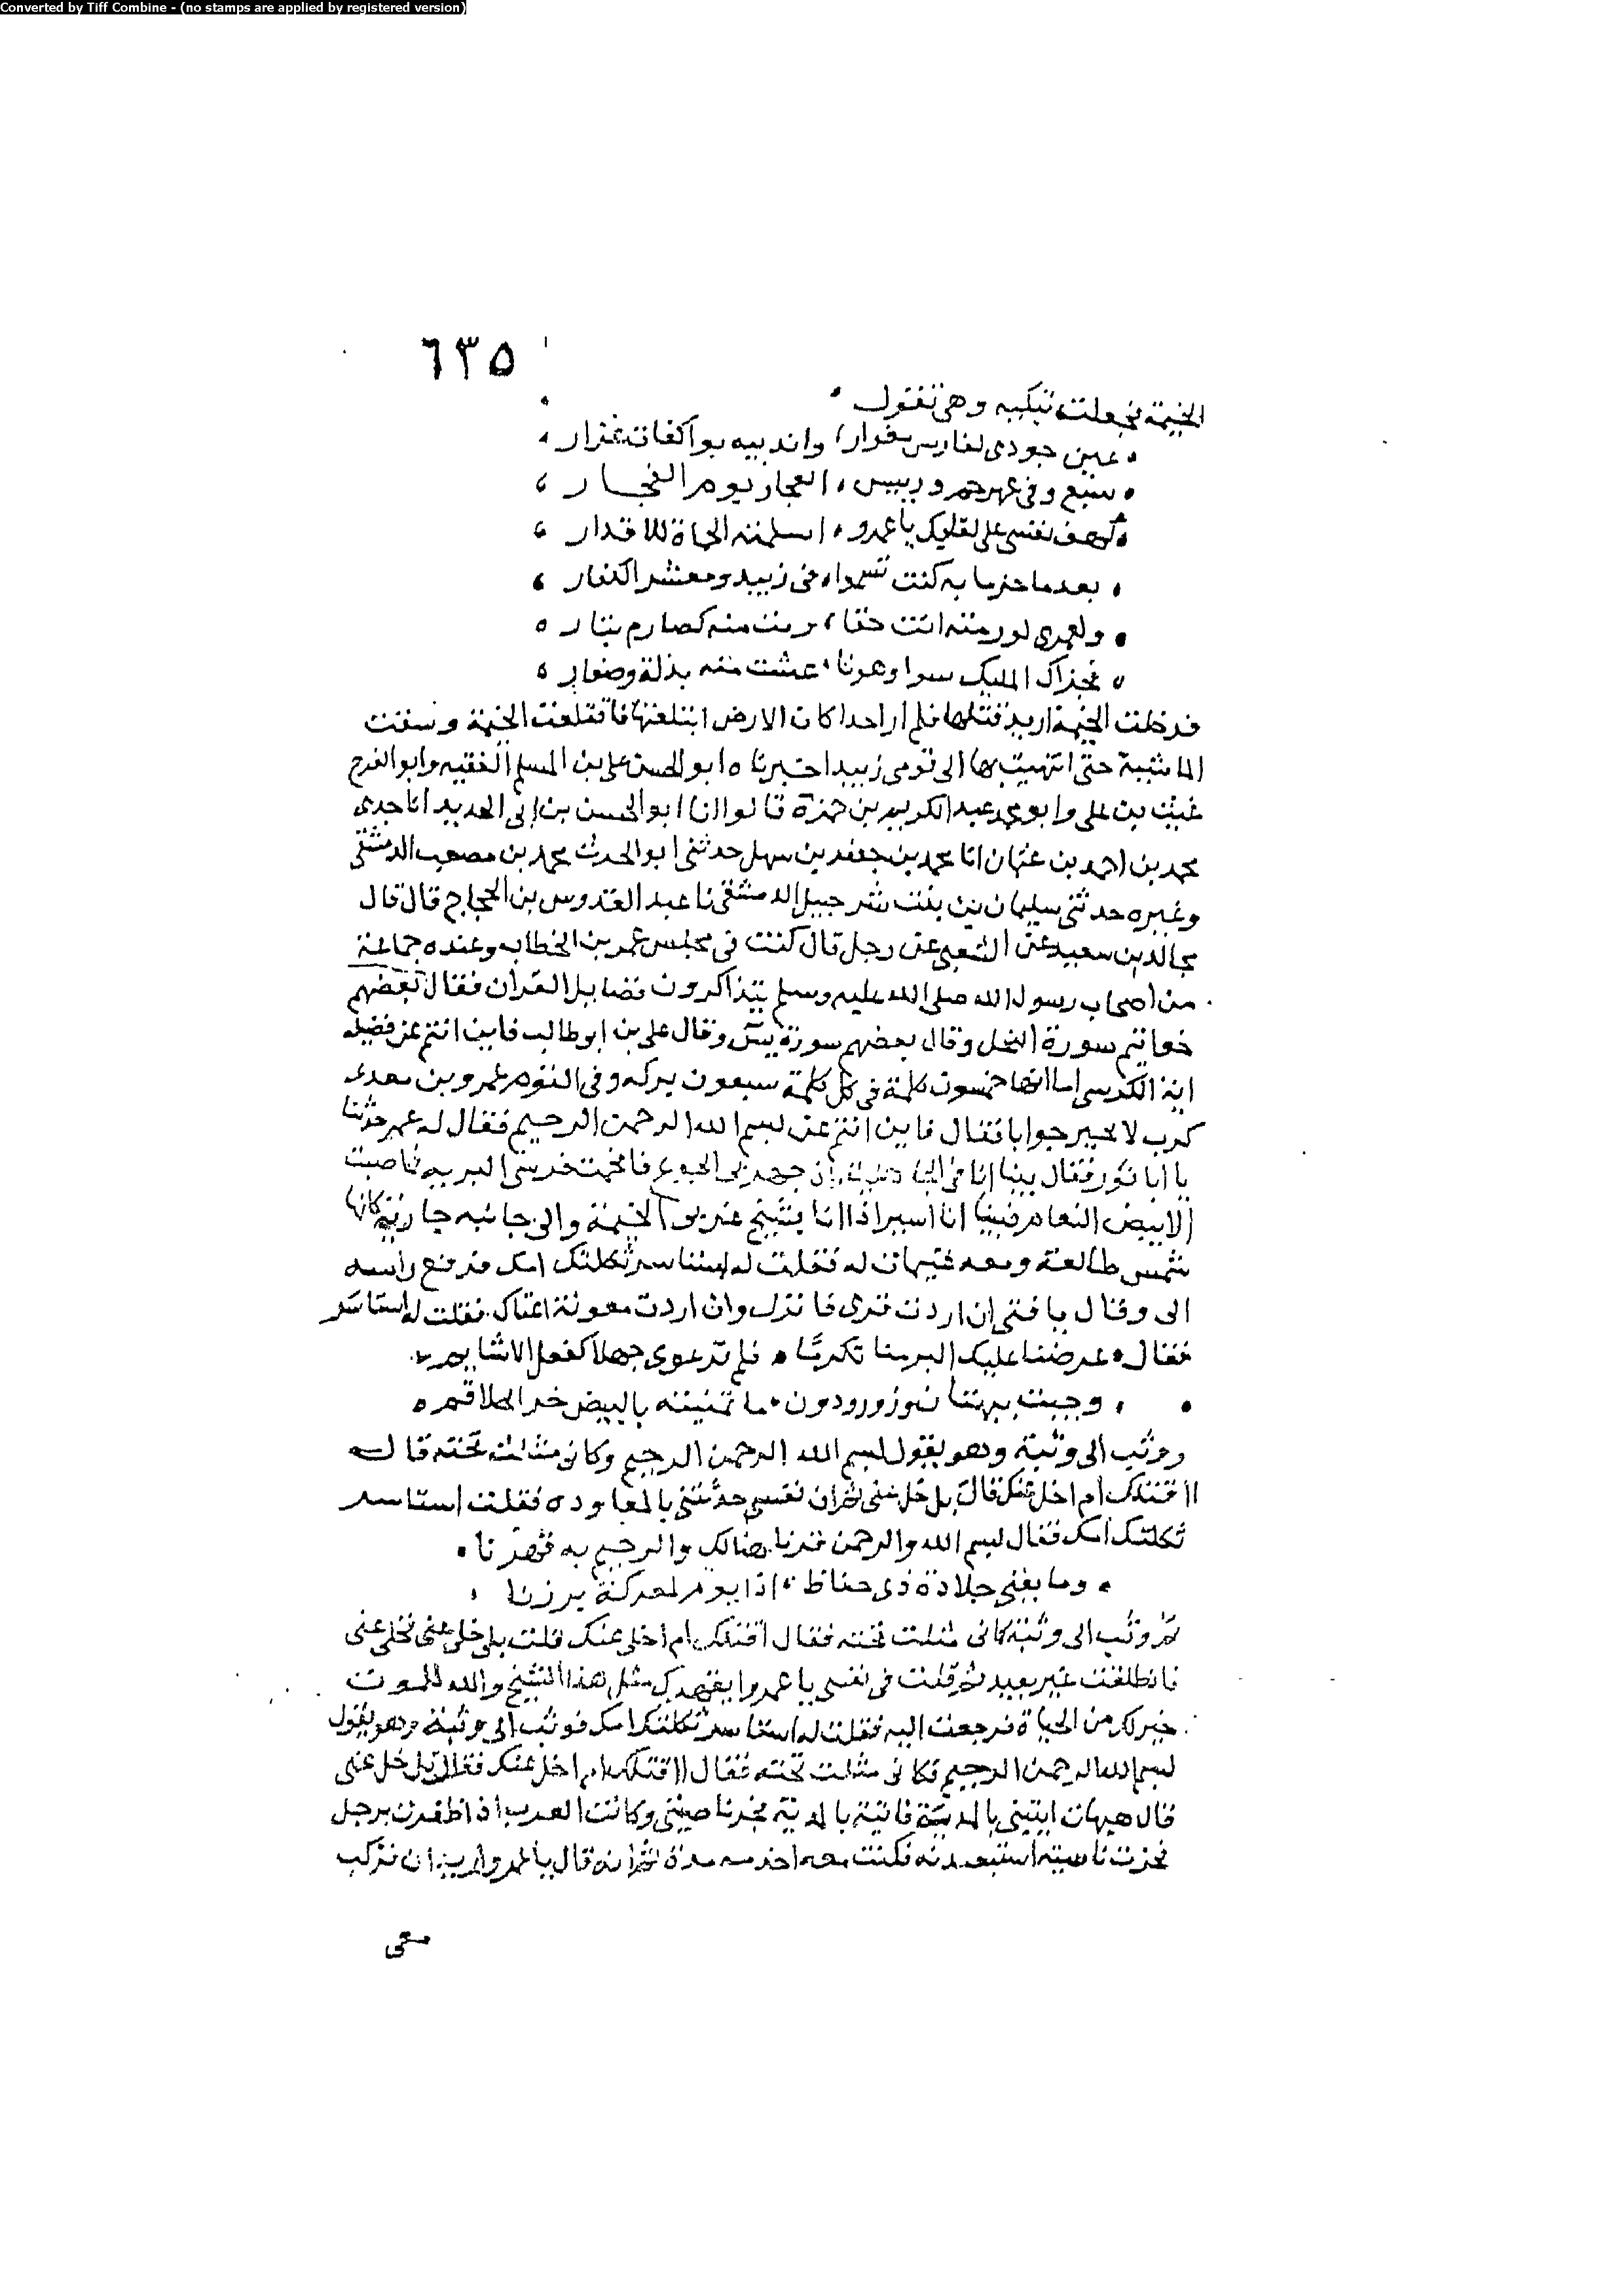 Converted by Tiff Combine - (no stamps are applied by registered version)
٦٣٥
الخيمة فجعلت تبكيه وهي تقول
عين جودي لفارس مغوار واندبيه بواكفات غزار
سبع وفي عهدهم ورييس الفجار يوم الفجار
لهف نفسي على لقليك يا عمرو اسلمته الحماة للاقدار
بعدما حزما به كنت تسموا في زبيد ومعشر الكفار
ولعمري لو رمته انت حقا رمت منه كصارم بتار
فجزاك المليك سوا وهونا عشت منه بذلة وصغار
فدخلت الخيمة اريد قتلها فلم ار احدا كان الارض ابتلعتها فاقتلعت الخيمة وسقت
الماشية حتى انتهيت بها الى قومي زبيد اخبرناه ابو الحسن علي بن المسلم الفقيه وابو الفرج
غيث بن علي وابو محمد عبد الكريم بن حمزة قالوا انا ابو الحسن بن ابي الحديد انا جدي
محمد بن احمد بن عثمان انا محمد بن جعفر بن سهل حدثني ابو الحرث محمد بن مصعب الدمشقي
وغيره حدثني سليمان بن بنت شرحبيل الدمشقي نا عبد القدوس بن الحجاج قال قال
مجالد بن سعيد عن الشعبي عن رجل قال كنت في مجلس عمر بن الخطاب وعنده جماعة
من اصحاب رسول الله صلى الله عليه وسلم يتذاكرون فضايل القران فقال بعضهم
خواتيم سورة النحل وقال بعضهم سورة يس وقال علي بن ابو طالب فاين انتم عن فضيلة
اية الكرسي اما انها خمسون كلمة في كل كلمة سبعون بركه وفي القوم عمرو بن معدي
كرب لا يحير جوابا فقال فاين انتم عن بسم الله الرحمن الرحيم فقال له عمر حدثنا
يا ابا ثور فقال بينا انا في الجاهلية اذ جهدني الجوع فاقحمت فرسي البرية فما صبت
الا بيض النعام فبينا انا اسير اذا انا بشيخ عربي الخيمة والى جانبه جارية كانها
شمس طالعة ومعه غنيمات له فقلت له استاسر ثكلتك امك فرفع راسه
الى وقال يا فتى ان اردت قرى فانزل وان اردت معونة اعناك فقلت له استاسر
فقال عرضنا عليك البر منا تكرما فلم ترعوي جهلا كفعل الاشايم
وجيت ببهتان وزور ودون ما تمنيته بالبيض حز الحلاقم
ووثب الى وثبة وهو يقول بسم الله الرحمن الرحيم وكاني مثلت تحته قال
ااقتلك ام اخل عنك قال بل خل عني ثم ان نفسي حدثتني بالمعاوده فقلت استاسر
ثكلتك امك فقال بسم الله والرحمن فزنا هنالك والرحيم به قهرنا
وما يغني جلادة ذي حفاظ اذا يوم لمعركة برزنا
ثم وثب الى وثبة كاني مثلت تحته فقال اقتلك ام اخلي عنك قلت بلى خل عني فخلى عني
فانطلقت غير بعيد ثم قلت في نفسي يا عمرو ايقهرك مثل هذا الشيخ والله للموت
خير لك من الحياة فرجعت اليه فقلت له استاسر ثكلتك امك فوثب الى وثبة وهو يقول
بسم الله الرحمن الرحيم فكاني مثلت تحته فقال ااقتلك ام اخل عنك فقال بل خل عني
قال هيهات ايتيني بالمدية فاتيته بالمدية فجز ناصيتي وكانت العرب اذا ظفرت برجل
فجزت ناصيته استعبدته فكنت معه اخدمه مدة ثم انه قال يا عمرو اريد ان تركب
معي